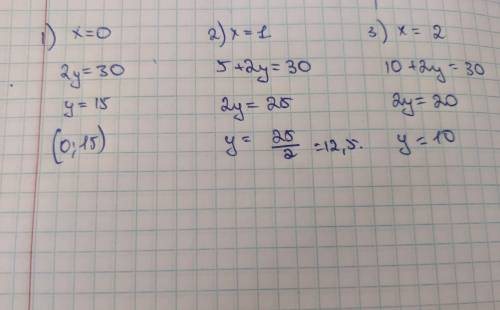 1) x=0
2y=30
y=15
(0;15)
2) x=1
5+2y=30
2y=25
y= 25/2 =12,5.
3) x= 2
10+2y=30
2y=20
y=10